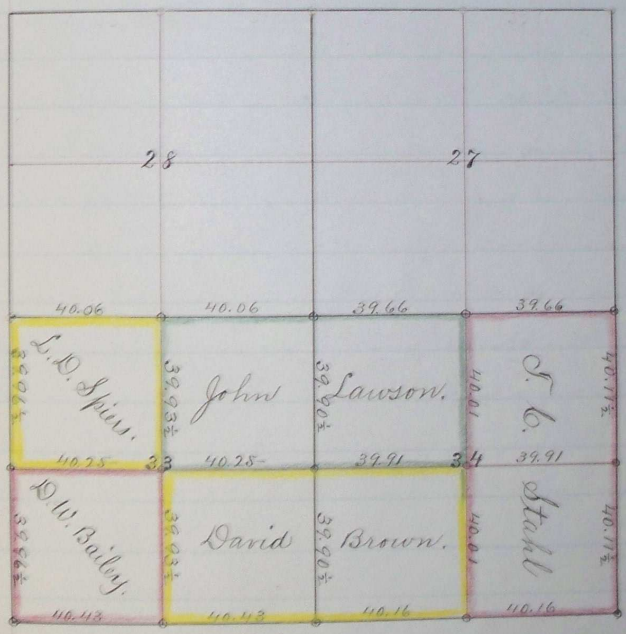 28 27
40.06 40.06 39.66 39.66
39.96½ L.D. Spiers. 39.93½ John 39.90½ Lawson. 40.01 T. C. 40.11½
40.25 33 40.25 39.91 34 39.91
39.96½ D.W. Bailey. 39.93½ David 39.90½ Brown. 40.01 Stahl 40.11½
40.43 40.43 40.16 40.16